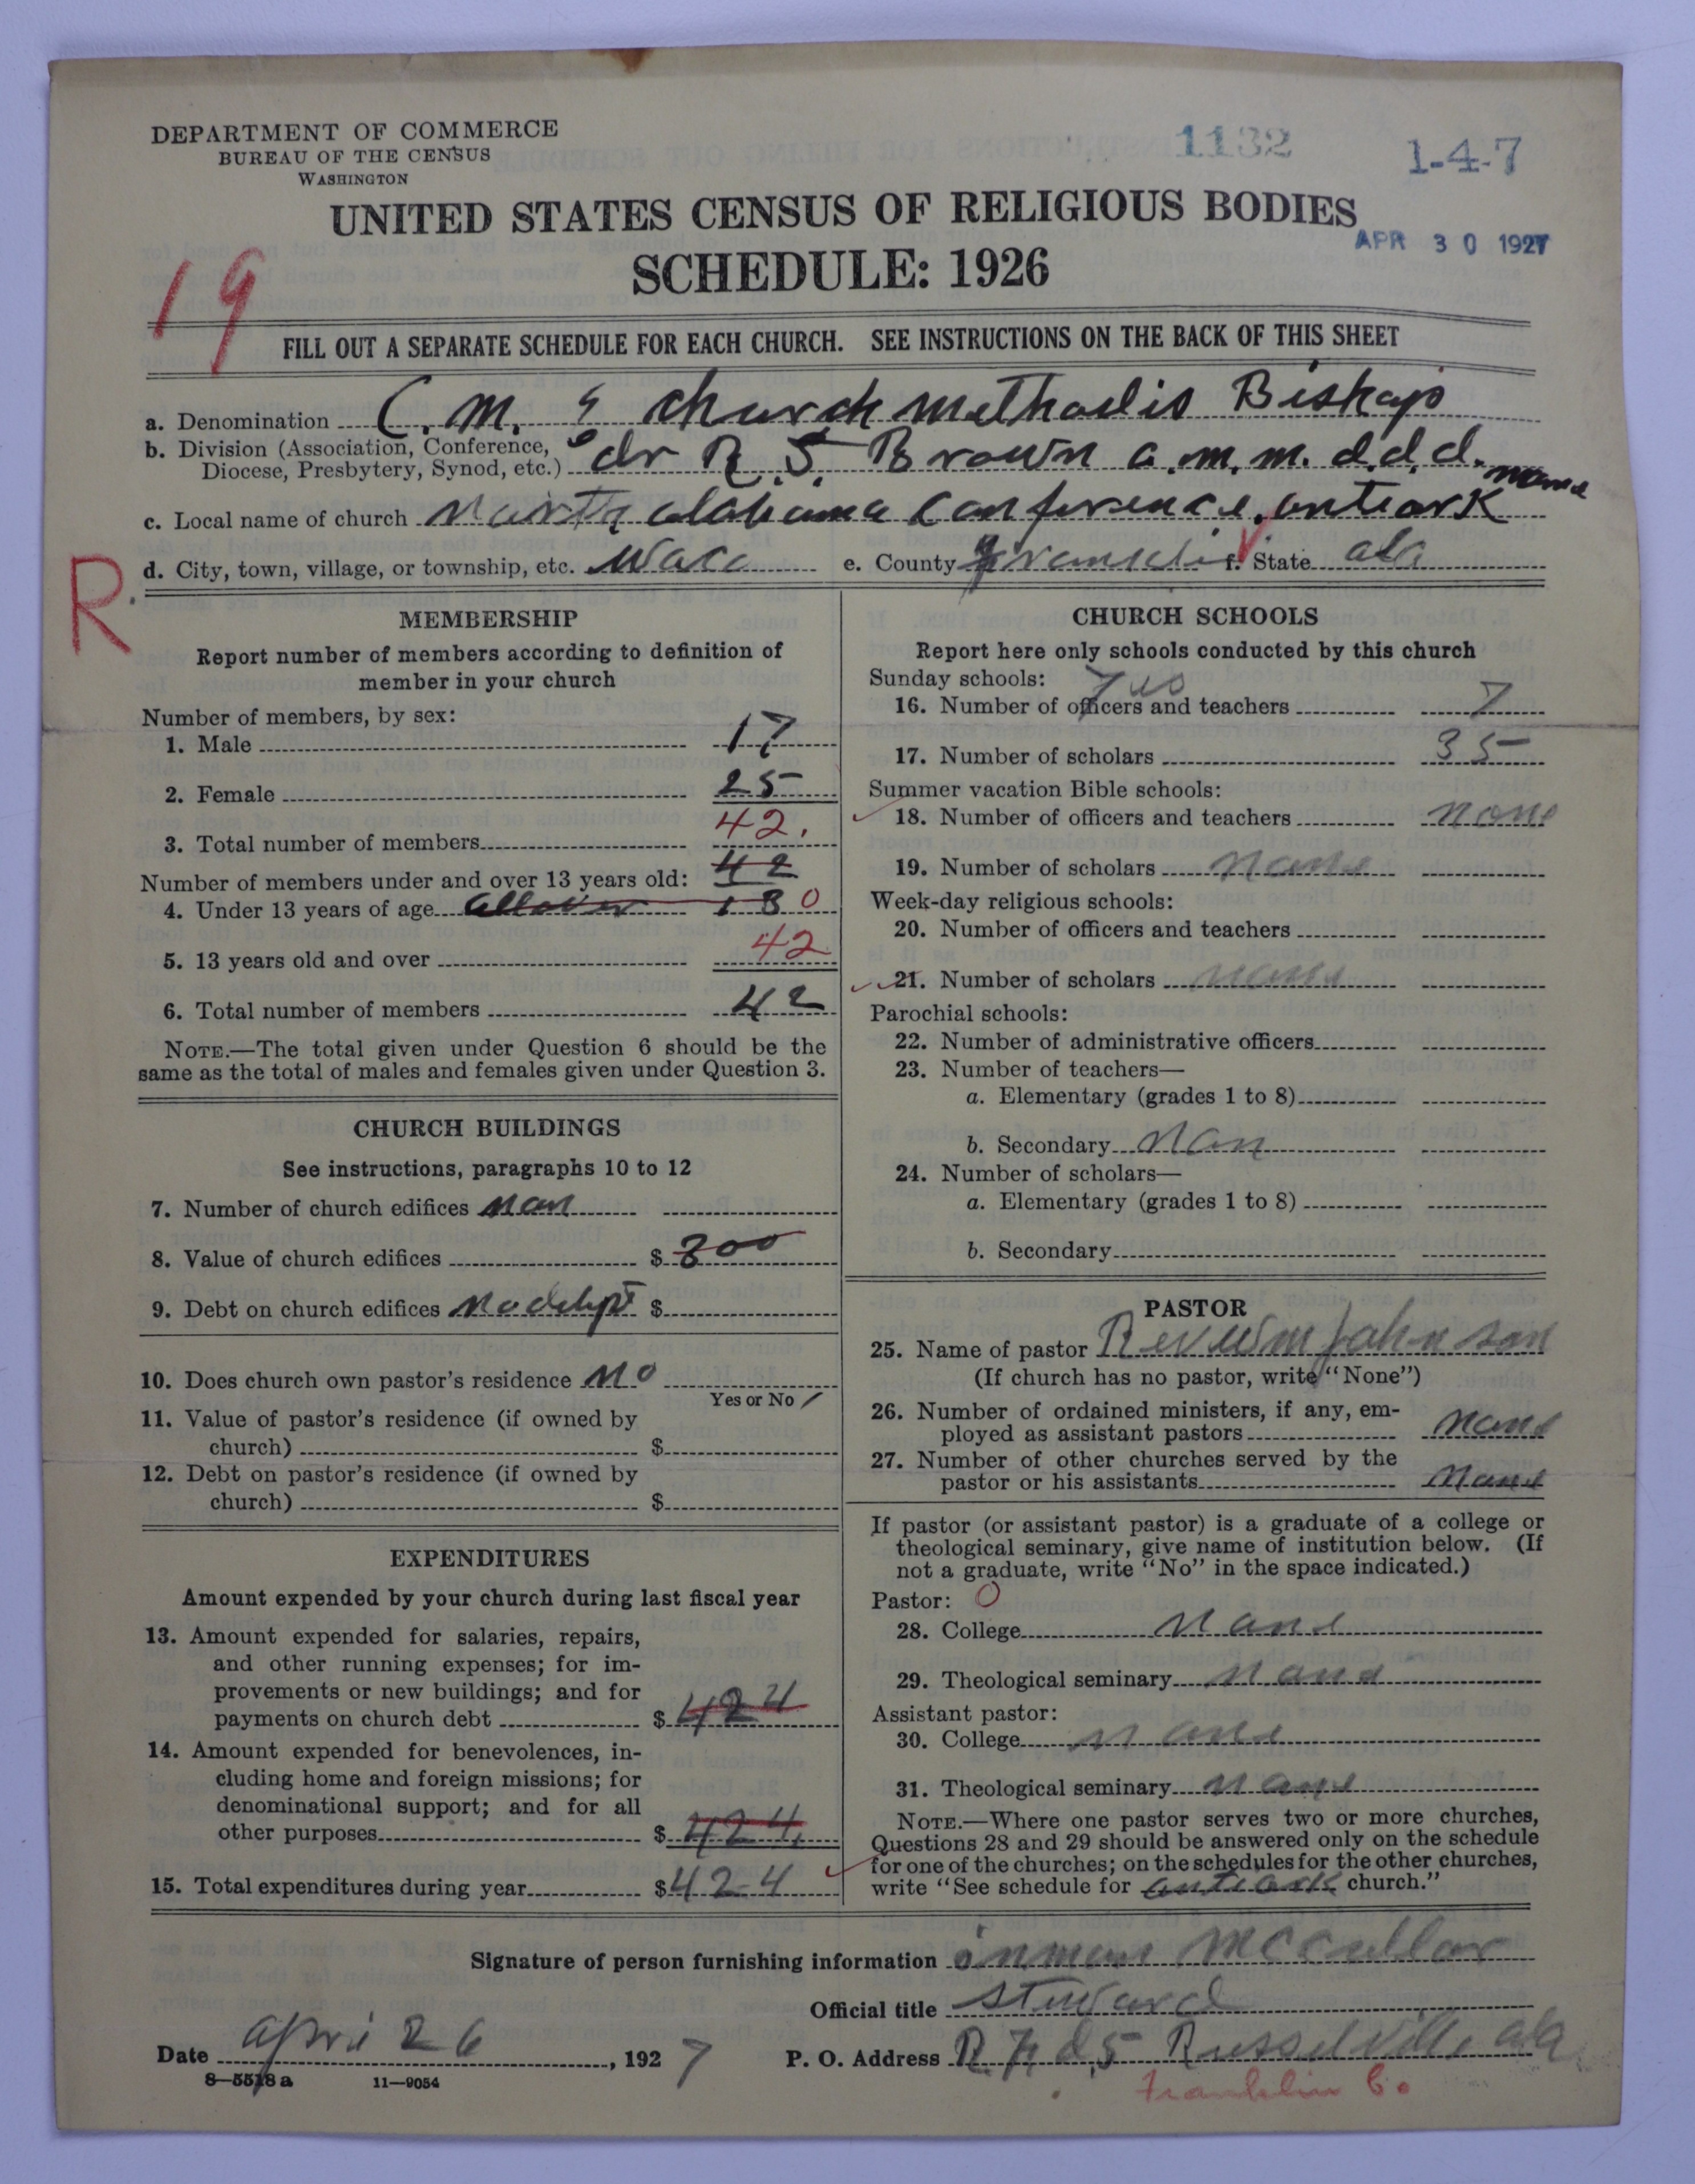 DEPARTMENT OF COMMERCE
BUREAU OF THE CENSUS
WASHINGTON
1132
1-4-7
UNITED STATES CENSUS OF RELIGIOUS BODIES
SCHEDULE: 1926
APR 30 1927
19
FILL OUT A SEPARATE SCHEDULE FOR EACH CHURCH. SEE INSTRUCTIONS ON THE BACK OF THIS SHEET
a. Denomination C. M. E church methodis Bishop
b. Division (Association, Conference,
Diocese, Presbytery, Synod, etc.) dr R. S. Brown a.m.m.d.d.d.
name
c. Local name of church north alabama Conference, anteork
d. City, town, village, or township, etc. Waco e. County Franklin f. State ala
R.
MEMBERSHIP
Report number of members according to definition of
member in your church
Number of members, by sex:
1. Male 17
2. Female 25
3. Total number of members 42.
42
Number of members under and over 13 years old:
4. Under 13 years of age all over 13 0
5. 13 years old and over 42
6. Total number of members 42
NOTE.—The total given under Question 6 should be the
same as the total of males and females given under Question 3.
CHURCH BUILDINGS
See instructions, paragraphs 10 to 12
7. Number of church edifices nan
8. Value of church edifices $ 300
9. Debt on church edifices no dept $
10. Does church own pastor's residence no
Yes or No
11. Value of pastor's residence (if owned by
church) $
12. Debt on pastor's residence (if owned by
church) $
EXPENDITURES
Amount expended by your church during last fiscal year
13. Amount expended for salaries, repairs,
and other running expenses; for im-
provements or new buildings; and for
payments on church debt $ 424
14. Amount expended for benevolences, in-
cluding home and foreign missions; for
denominational support; and for all
other purposes $ 424.
15. Total expenditures during year $ 424
CHURCH SCHOOLS
Report here only schools conducted by this church
Sunday schools: yes
16. Number of officers and teachers 7
17. Number of scholars 35
Summer vacation Bible schools:
18. Number of officers and teachers none
19. Number of scholars none
Week-day religious schools:
20. Number of officers and teachers
21. Number of scholars none
Parochial schools:
22. Number of administrative officers
23. Number of teachers—
a. Elementary (grades 1 to 8)
b. Secondary nan
24. Number of scholars—
a. Elementary (grades 1 to 8)
b. Secondary
PASTOR
25. Name of pastor Rev wm Johnson
(If church has no pastor, write "None")
26. Number of ordained ministers, if any, em-
ployed as assistant pastors none
27. Number of other churches served by the
pastor or his assistants none
If pastor (or assistant pastor) is a graduate of a college or
theological seminary, give name of institution below. (If
not a graduate, write "No" in the space indicated.)
Pastor: O
28. College none
29. Theological seminary none
Assistant pastor:
30. College none
31. Theological seminary none
NOTE.—Where one pastor serves two or more churches,
Questions 28 and 29 should be answered only on the schedule
for one of the churches; on the schedules for the other churches,
write "See schedule for anteork church."
Signature of person furnishing information inman mccullar
Official title steward
Date april 26, 1927 P. O. Address R. F. d 5 Russelville ala
8—5518 a 11—9054
Franklin Co.